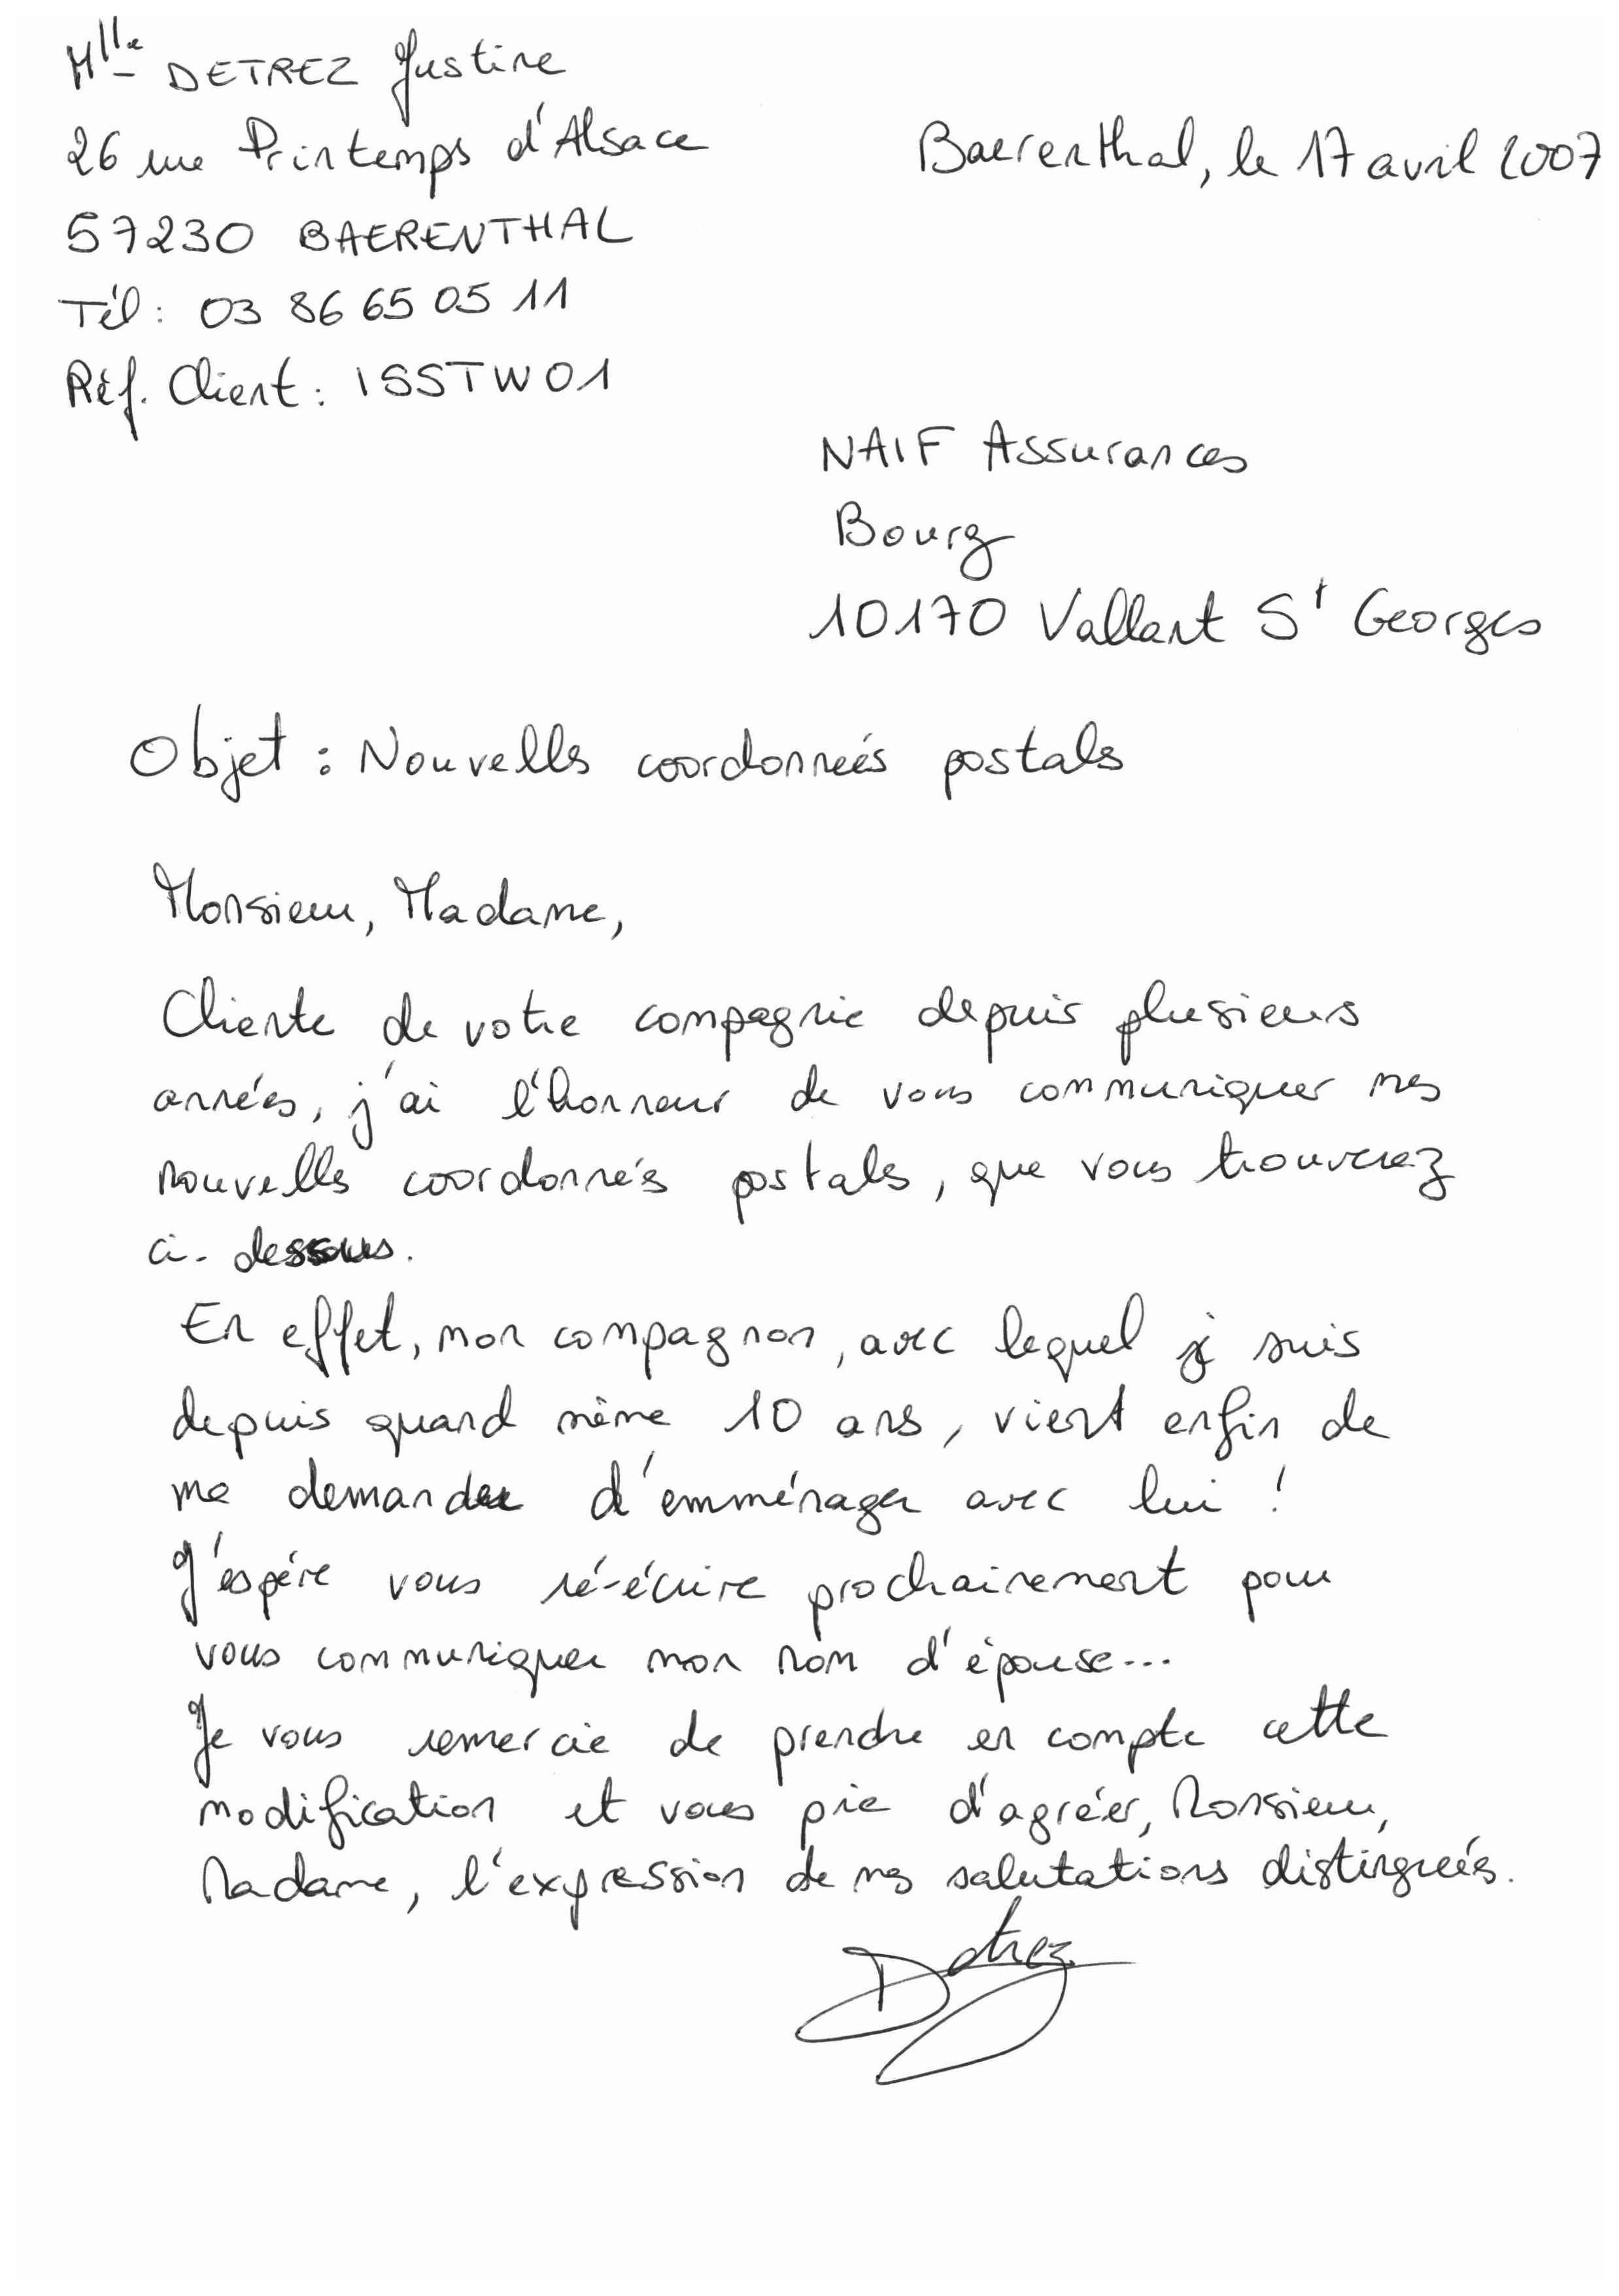 Mlle DETREZ Justine
26 rue Printemps d'Alsace
Baerenthal, le 17 avril 2007
57230 BAERENTHAL
Tél : 03 86 65 05 11
Réf. Client : ISSTW01
NAIF Assurances
Bourg
10170 Vallant St Georges
Objet : Nouvelles coordonnées postales
Monsieur, Madame,
Cliente de votre compagnie depuis plusieurs
années, j'ai l'honneur de vous communiquer mes
nouvelles coordonnées postales, que vous trouverez
ci-dessous.
En effet, mon compagnon, avec lequel je suis
depuis quand même 10 ans, vient enfin de
me demander d'emménager avec lui !
J'espère vous ré-écrire prochainement pour
vous communiquer mon nom d'épouse...
Je vous remercie de prendre en compte cette
modification et vous prie d'agréer, Monsieur,
Madame, l'expression de mes salutations distinguées.
Detrez